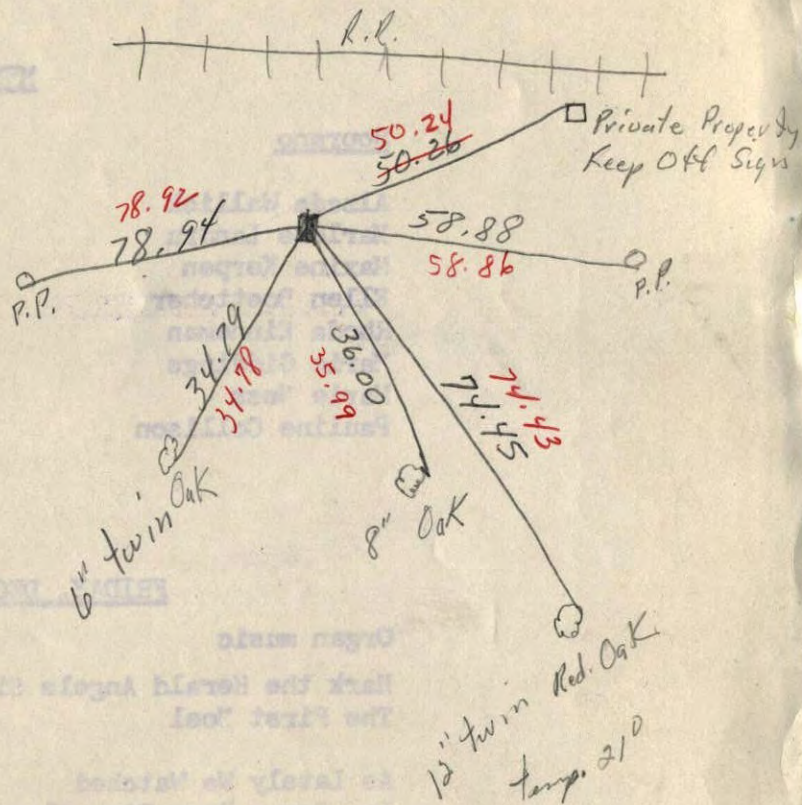 R.R.
50.24
50.26
Private Property
Keep Off Signs
78.92
78.94
58.88
58.86
P.P.
P.P.
34.79
34.78
36.00
35.99
74.43
74.45
6" twin Oak
8" Oak
12" twin Red. Oak
temp. 21°